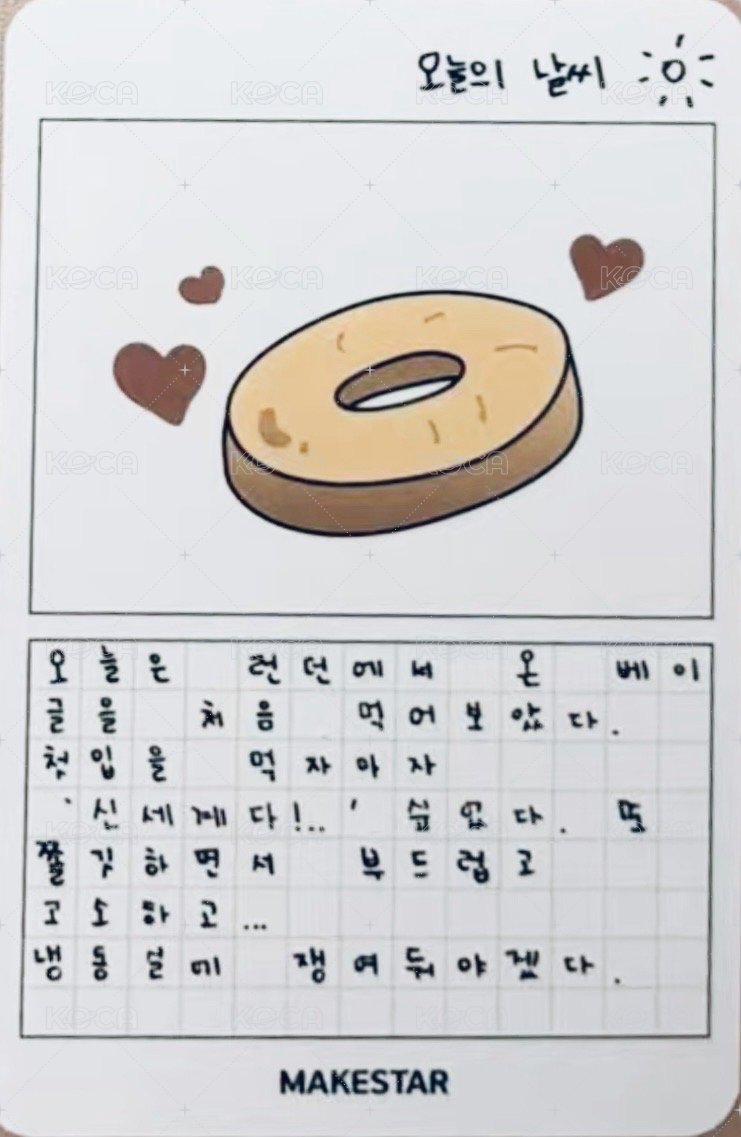 오늘의 날씨
오늘은 런던에서 온 베이
글을 처음 먹어보았다.
첫입을 먹자마자
'신세계다!..' 싶었다. 또
쫄깃하면서 부드럽고
고소하고...
냉동실에 쟁여둬야겠다.
MAKESTAR
KOCA